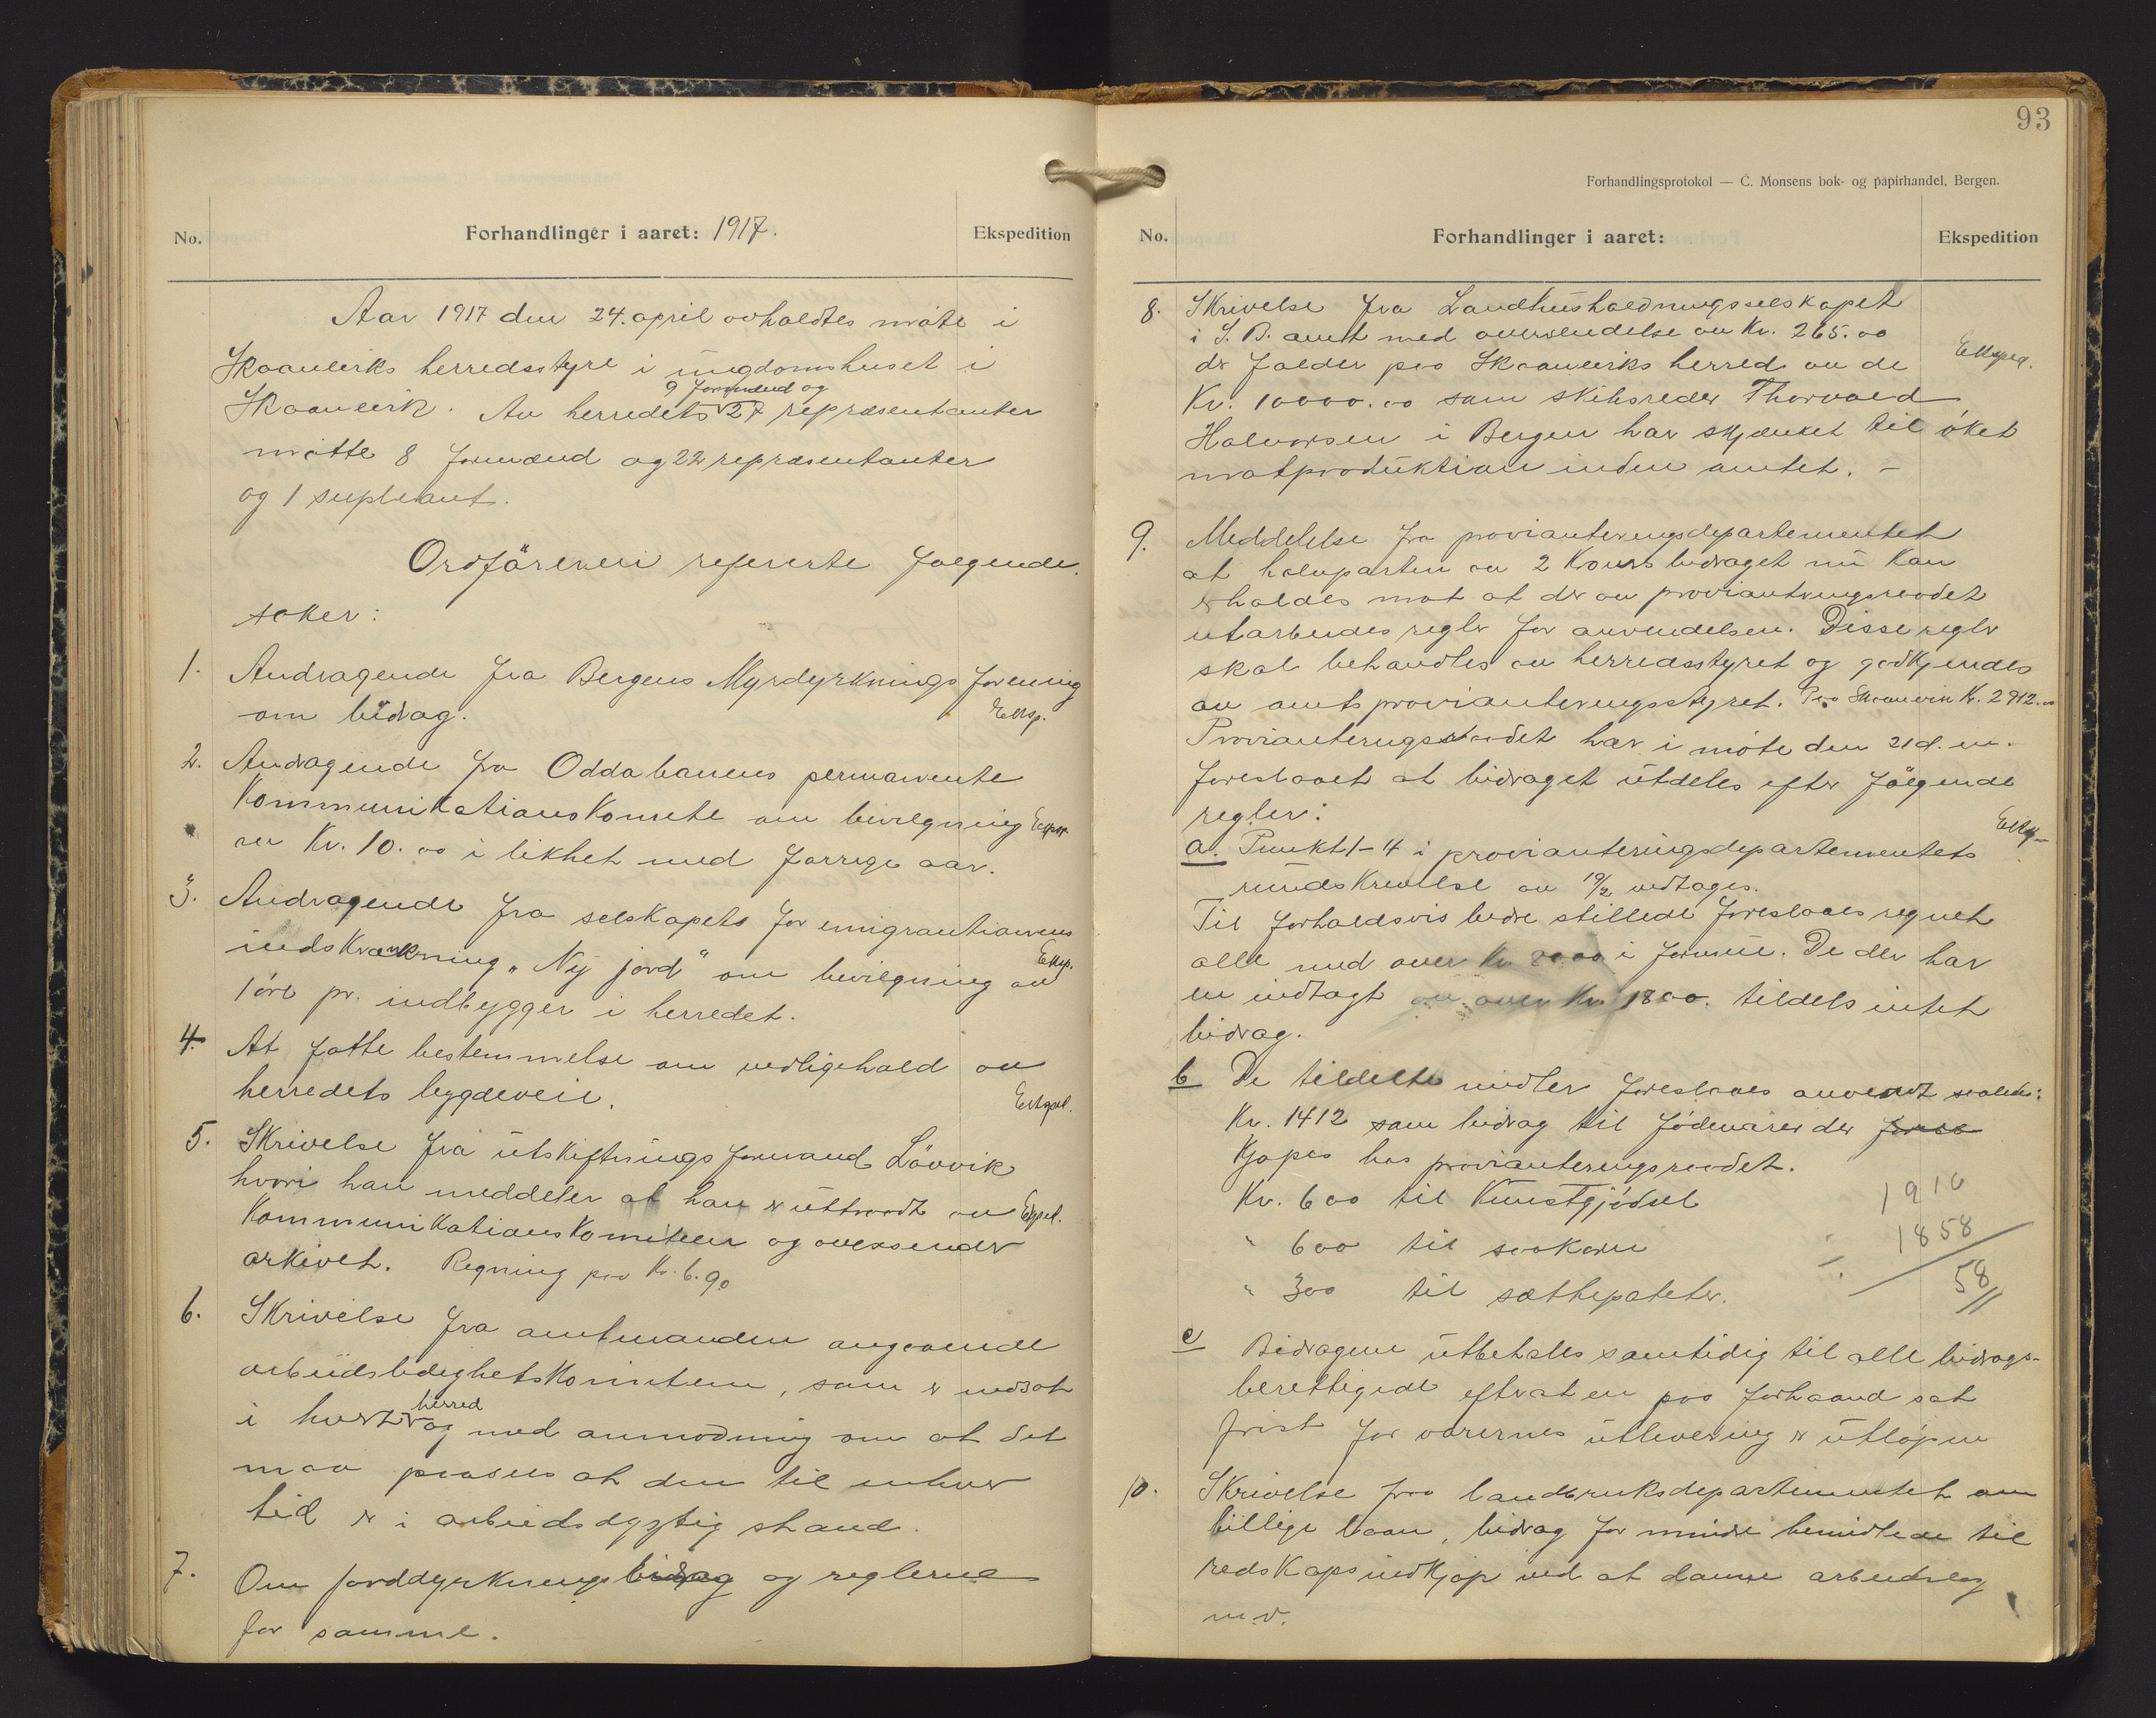 No.
Forhandlinger i aaret: 1917.
Ekspedition
Aar 1917 den 24. april avholdtes møte i
Skaaneviks herredsstyre i ungdomshuset i
9 formænd og
Skaanevik. Av herredets 27 repræsentanter
møtte 8 formænd og 22 repræsentanter
og 1 supleant.
Ordføreren refererte følgende
saker:
1. Andragende fra Bergens Myrdyrknings forening
om bidrag. Eksp.
2. Andragende fra Oddabanens permanente
Kommunikationskomite om bevilgning Eksp.
av Kr. 10.00 i likhet med forrige aar.
3. Andragende fra selskapets for emigrantionens
indskrænkning "Ny jord" om bevilgning av Eksp.
1 øre pr. indbygger i herredet.
4. At fatte bestemmelse om vedligehold av
herredets bygdeveie. Ekspd.
5. Skrivelse fra utskiftningsformand Løvvik
hvori han meddeler at han er uttraadt av Ekspd.
Kommunikationskomiteen og oversender
arkivet. Regning paa Kr. 6.90
6. Skrivelse fra amtmanden angaaende
arbeidsledighetskomiteen, som er nedsat
herred
i hvert og med anmodning om at det
maa paasees at den til enhver
tid er i arbeidsdygtig stand.
7. Om jorddyrkningsbidrag og reglerne
for samme.
93
Forhandlingsprotokol — C. Monsens bok- og papirhandel, Bergen.
No.
Forhandlinger i aaret:
Ekspedition
8. Skrivelse fra Landhusholdningsselskapet
i S. B. amt med oversendelse av Kr. 265.00
der falder paa Skaaneviks herred av de Ekspd.
Kr. 10000.00 som skibsreder Thorvald
Halvorsen i Bergen har skjænket til øket
matproduktion inden amtet. -
9. Meddelelse fra provianteringsdepartementet
at halvparten av 2 Kroners bidraget nu kan
erholdes mot at der av provianteringsraadet
utarbeides regler for anvendelsen. Disse regler
skal behandles av herredsstyret og godkjendes
av amtsprovianteringsstyret. Paa Skaanevik Kr. 2912.00
Provianteringsraadet har i møte den 21 d. m.
foreslaaet at bidraget utdeles efter følgende
regler: Eksp.
a. Punkt 1-4 i provianteringsdepartementets
rundskrivelse av 19/2 vedtages.
Til forholdsvis bedre stillede foreslaaes regnet
alle med over Kr. 8000 i formue. De der har
en indtægt av over Kr. 1800. tildels intet
bidrag.
b De tildelte midler foreslaaes anvendt saaledes:
Kr. 1412 som bidrag til fødevarer der
kjøpes hos provianteringsraadet.
Kr. 600 til Kunstgjødsel
1916
" 600 til saakorn
1858
" 300 til sættepoteter.
58
c Bidragene utbetales samtidig til alle bidrags-
berettigede efterat en paa forhaand sat
frist for varernes utlevering er utløpen
10. Skrivelse fra landbruksdepartementet om
billige laan, bidrag for mindre bemidlede til
redskapsindkjøp ved at danne arbeidslag
m.v.